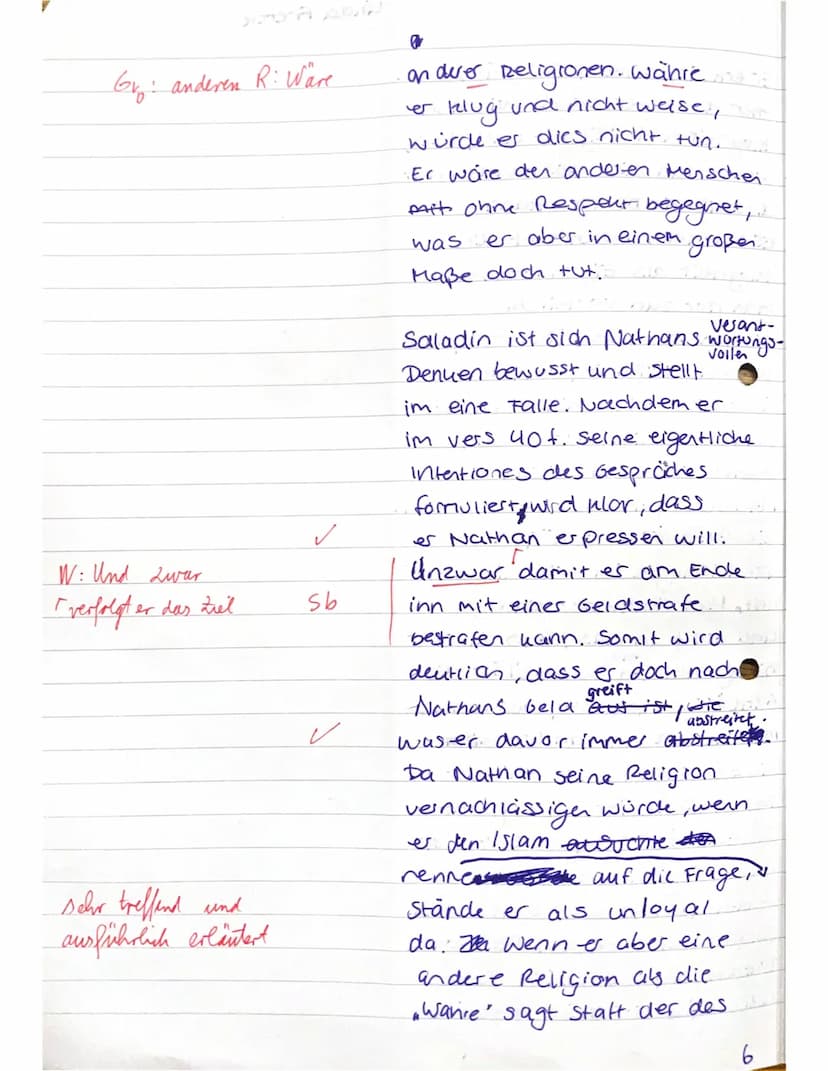 Gr: anderen R: Wäre
anderer Religionen. Währe
er klug und nicht weise,
würde er dies nicht tun.
Er wäre den anderen Menschen
mit ohne Respekt begegnet,
was er aber in einem großen
Maße doch tut.
Saladin ist sich Nathans verant-
wortungs-
vollen
Denken bewusst und stellt
im eine Falle. Nachdem er
im vers 40 f. seine eigentliche
Intentiones des Gespräches
formuliert, wird klar, dass
✓ er Nathan erpressen will.
W: Und zwar
Unzwar damit er am Ende
verfolgt er das Ziel Sb
inn mit einer Geldstrafe
bestrafen kann. Somit wird
deutlich, dass er doch nach
greift
Nathans Geld aus ist, wie
abstreitet.
✓ was er davor immer abstreitet.
Da Nathan seine Religion
vernachlässigen würde, wenn
er den Islam
nenne auf die Frage,
sehr treffend und
stände er als unloyal
ausführlich erläutert
da. Wenn er aber eine
andere Religion als die
„Wahre" sagt statt der des
6